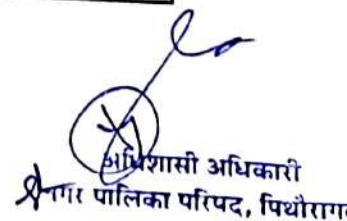 अधिशासी अधिकारी
नगर पालिका परिषद, पिथौरागढ